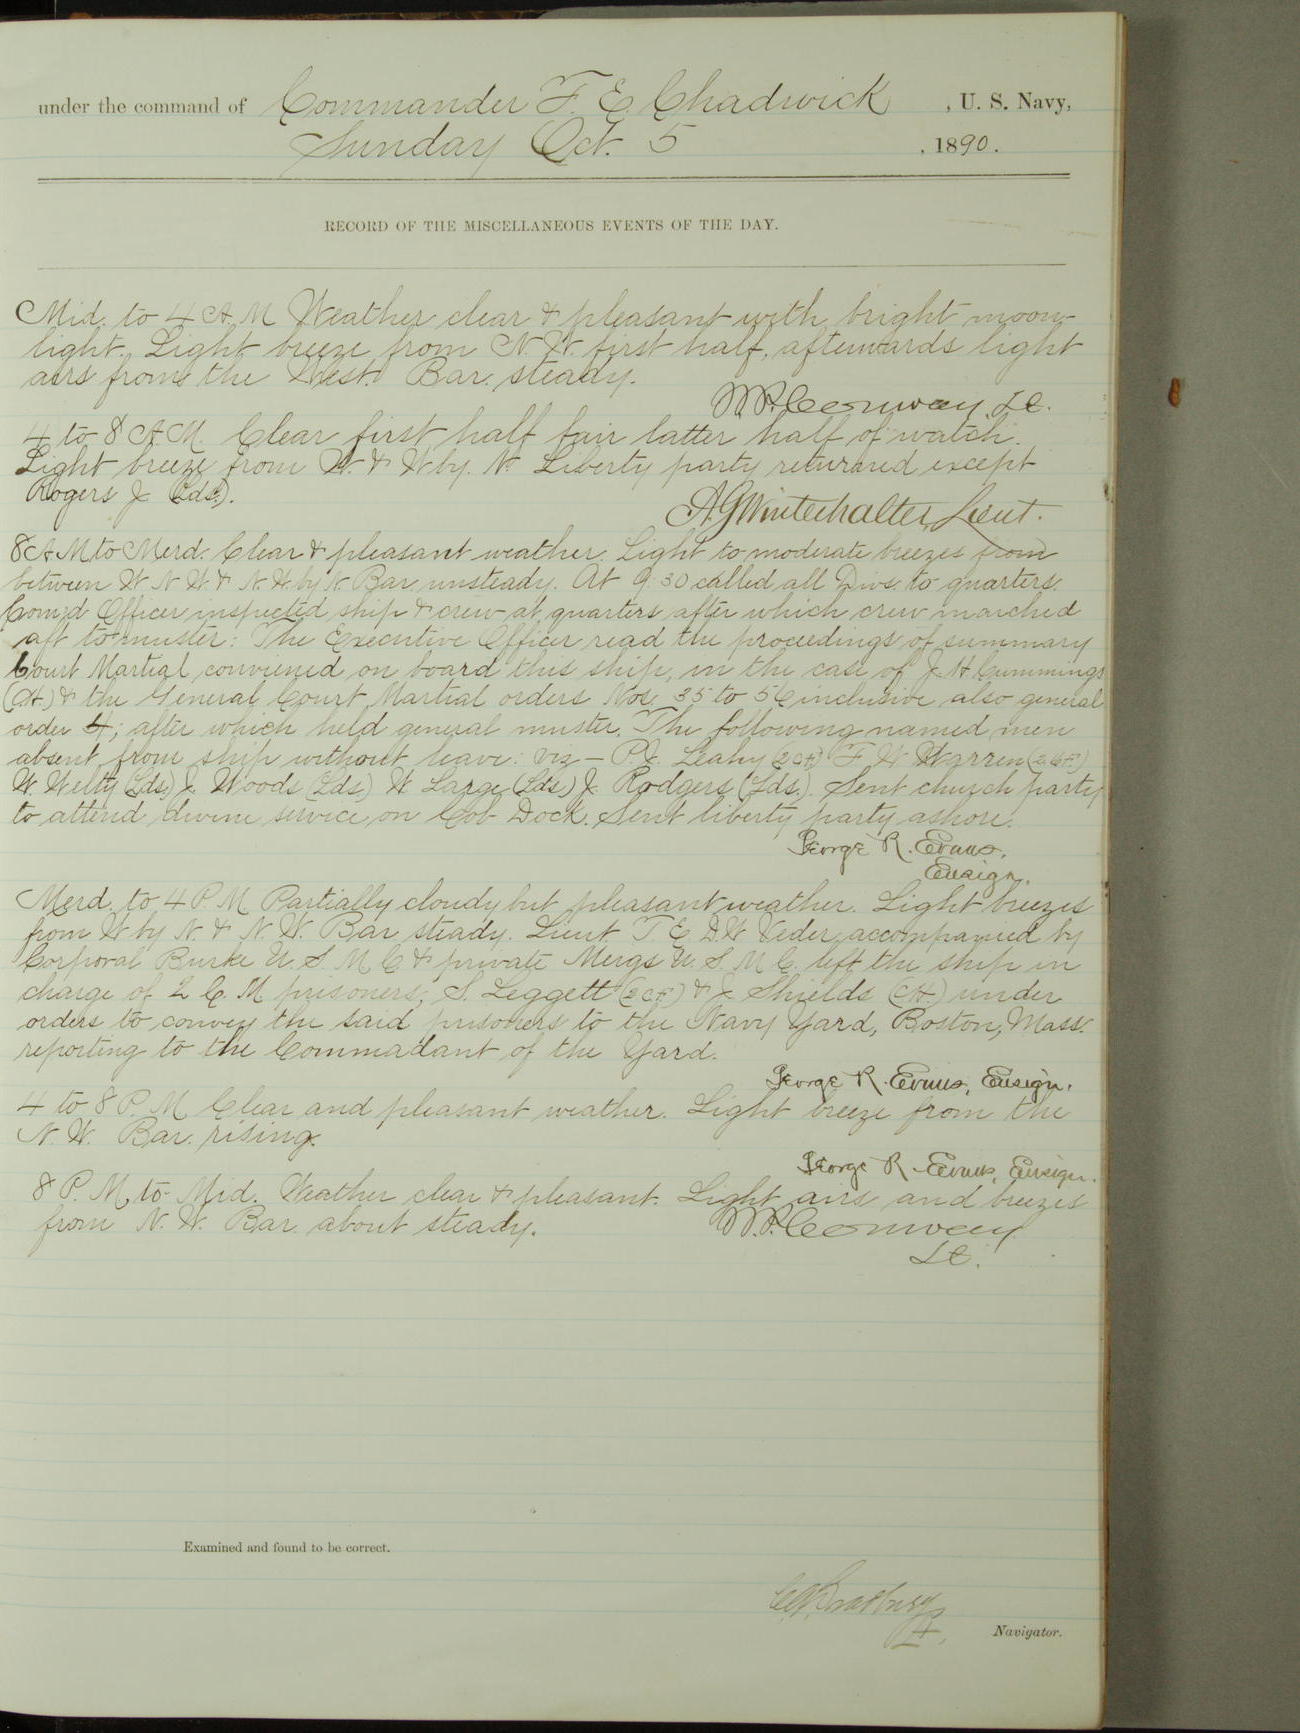 under the command of Commander F. E. Chadwick , U. S. Navy,
Sunday Oct. 5 , 1890.
RECORD OF THE MISCELLANEOUS EVENTS OF THE DAY.
Mid. to 4 A.M Weather clear & pleasant with bright moon-
light. Light breeze from N. W. first half, afterwards light
airs from the West. Bar. steady.
W.P. Conway, Lt.
4 to 8 A.M. Clear first half fair latter half of watch.
Light breeze from W. & W by. N. Liberty party returned except
Rogers J. (Lds.).
A. G. Winterhalter, Lieut.
8 A.M to Merd. Clear & pleasant weather. Light to moderate breezes from
between W N W & N. W. by N. Bar. unsteady. At 9:30 called all Divs. to quarters.
Com'd'g Officer inspected ship & crew at quarters after which crew marched
aft to muster: The Executive Officer read the proceedings of summary
Court Martial conviened on board this ship, in the case of J. H. Cummings
(CH.) & the General Court Martial orders Nos. 35 to 56 inclusive also general
order 4; after which held general muster. The following named men
absent from ship without leave: viz — P. J. Leahy F. W. Warren
W. Welty (Lds.) J. Woods (Lds.) W Large (Lds.) J. Rodgers (Lds.). Sent church party
to attend divine service on Cob Dock. Sent liberty party ashore.
George R. Evans,
Ensign.
Merd. to 4 P.M Partially cloudy but pleasant weather. Light breezes
from W by N. & N. W. Bar. steady. Lieut. T. E. D. W. Veder accompanied by
Corporal Burke U. S. M. C & private Mergs U. S. M C. left the ship in
charge of 2 C. M prisoners; S. Leggett (2 C.F.) & J. Shields (CH.) under
orders to convey the said prisoners to the Navy Yard, Boston, Mass.
reporting to the Commadant of the Yard.
George R. Evans, Ensign.
4 to 8 P. M Clear and pleasant weather. Light breeze from the
N. W. Bar. rising.
George R. Evans, Ensign.
8 P. M. to Mid. Weather clear & pleasant. Light airs and breezes
from N. W. Bar about steady.
W.P. Conway
Lt.
Examined and found to be correct.
Lt.
Navigator.